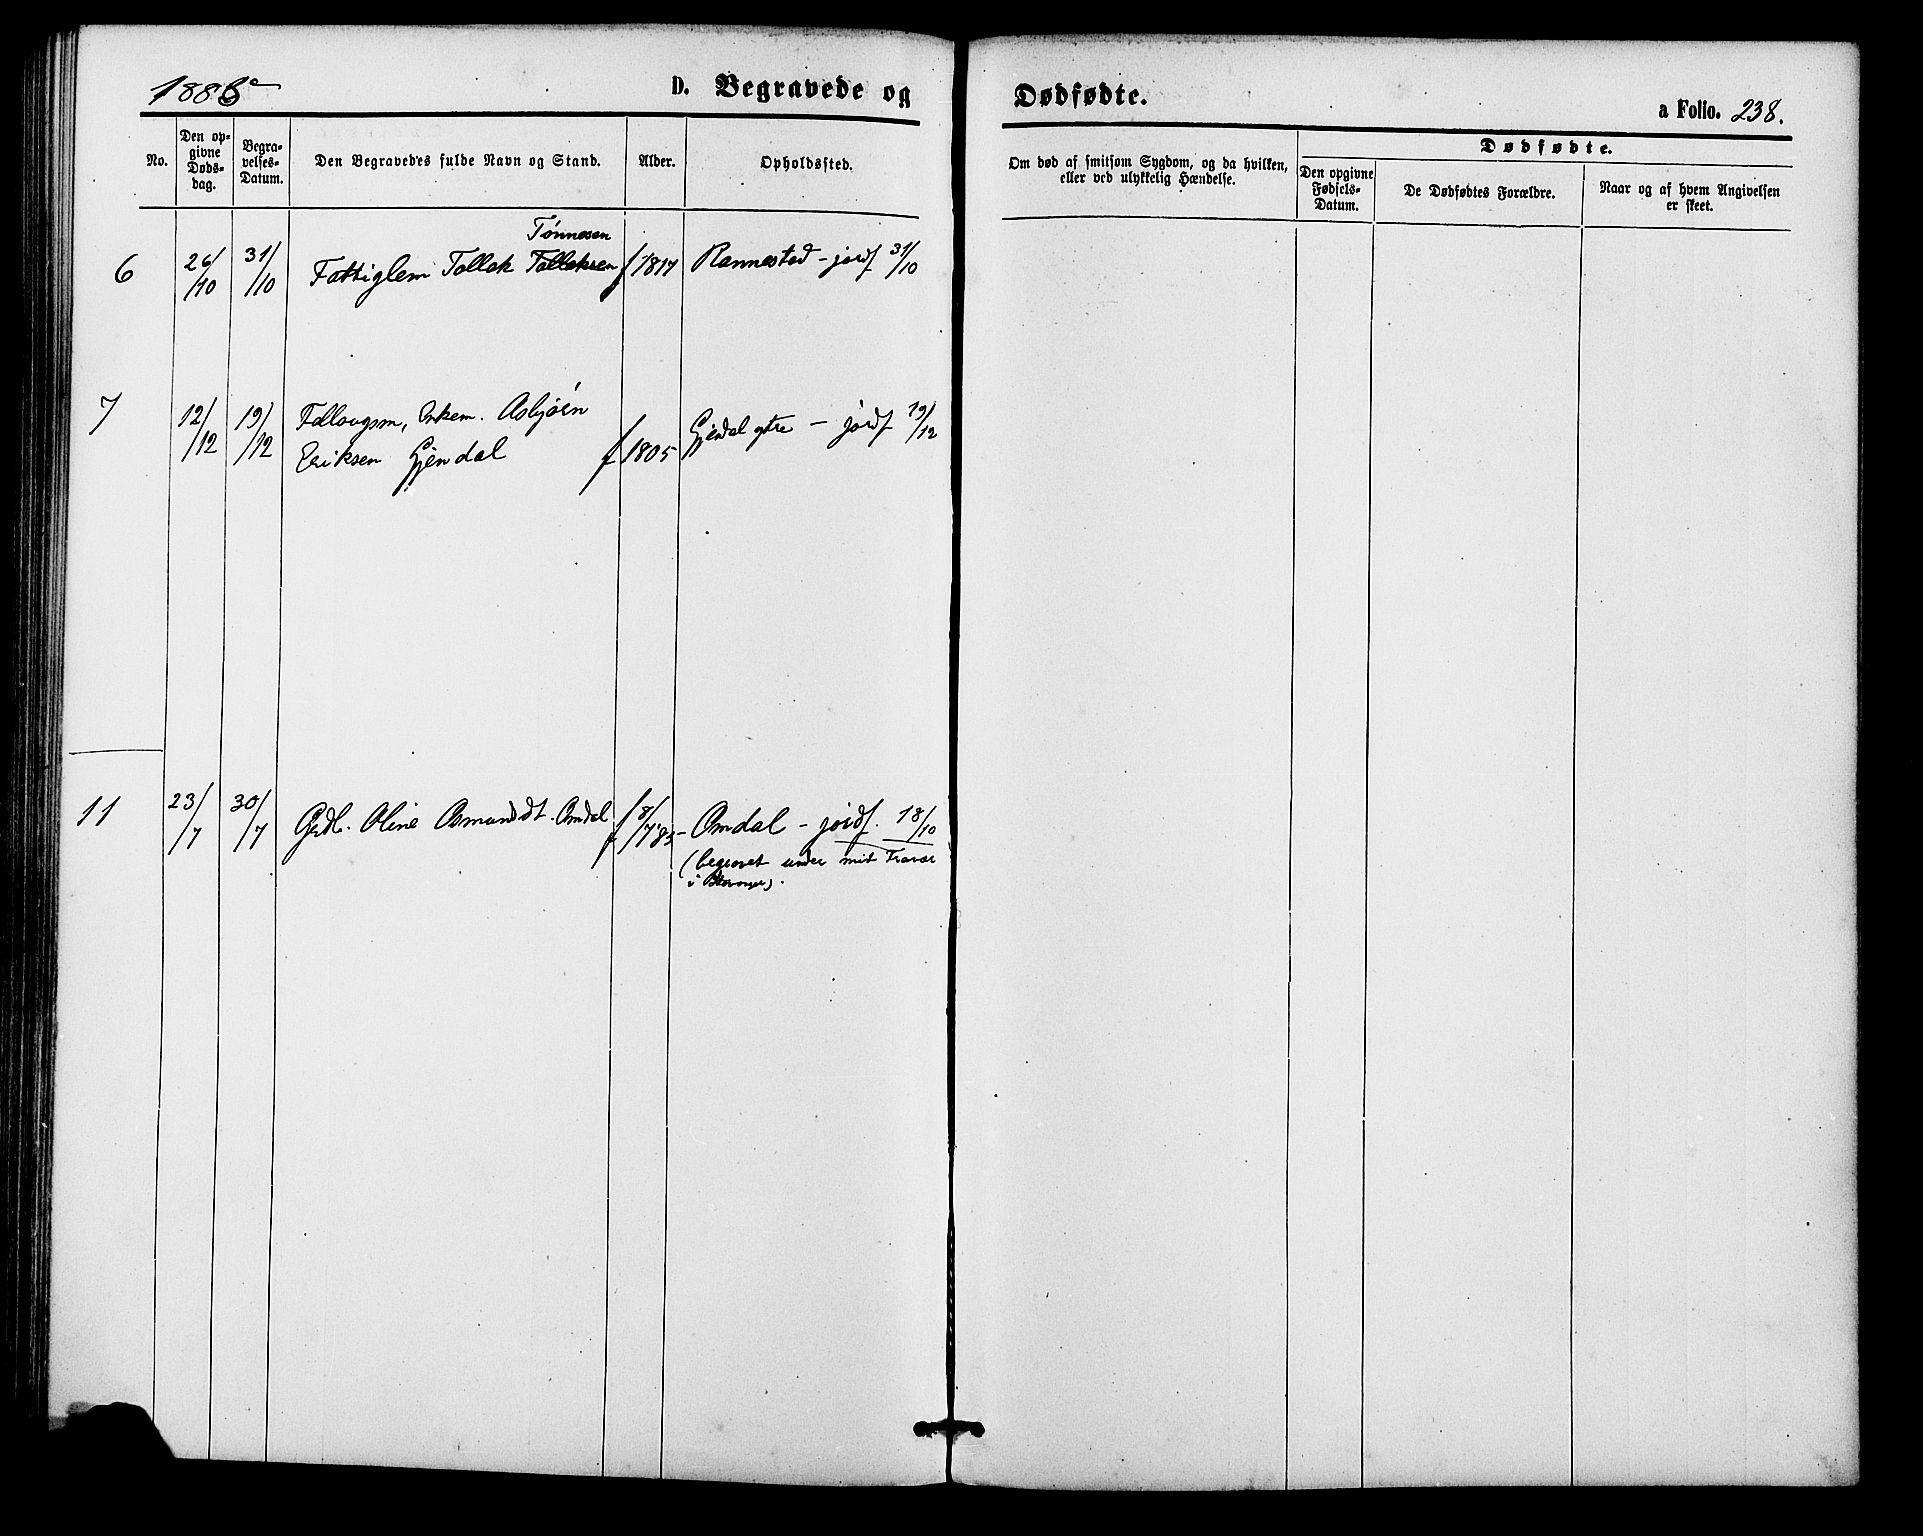 1885
D. Begravede og
Dødfødte.
a Folio. 238.
No.
Den op-
givne
Døds-
dag.
Begra-
velses-
Datum.
Den Begravedes fulde Navn og Stand.
Alder.
Opholdssted.
Om død af smitsom Sygdom, og da hvilken,
eller ved ulykkelig Hændelse.
Dødfødte.
Den opgivne
Fødsels-
Datum.
De Dødfødtes Forældre.
Naar og af hvem Angivelsen
er skeet.
Tønnesen
6 26/10 31/10 Fattiglem Tollak Tollaksen f 1817 Rannestad - jordf 31/10
7 12/12 19/12 Follaugsm, Enkem. Asbjørn
Eriksen Gjendal f 1805 Gjendal ytre - jordf 19/12
11 23/7 30/7 Grdb. Oline Osmundsdt. Omdal f 8/7 83 - Omdal - jordf. 18/10
(begravet under mit Fravær
i Stavanger).